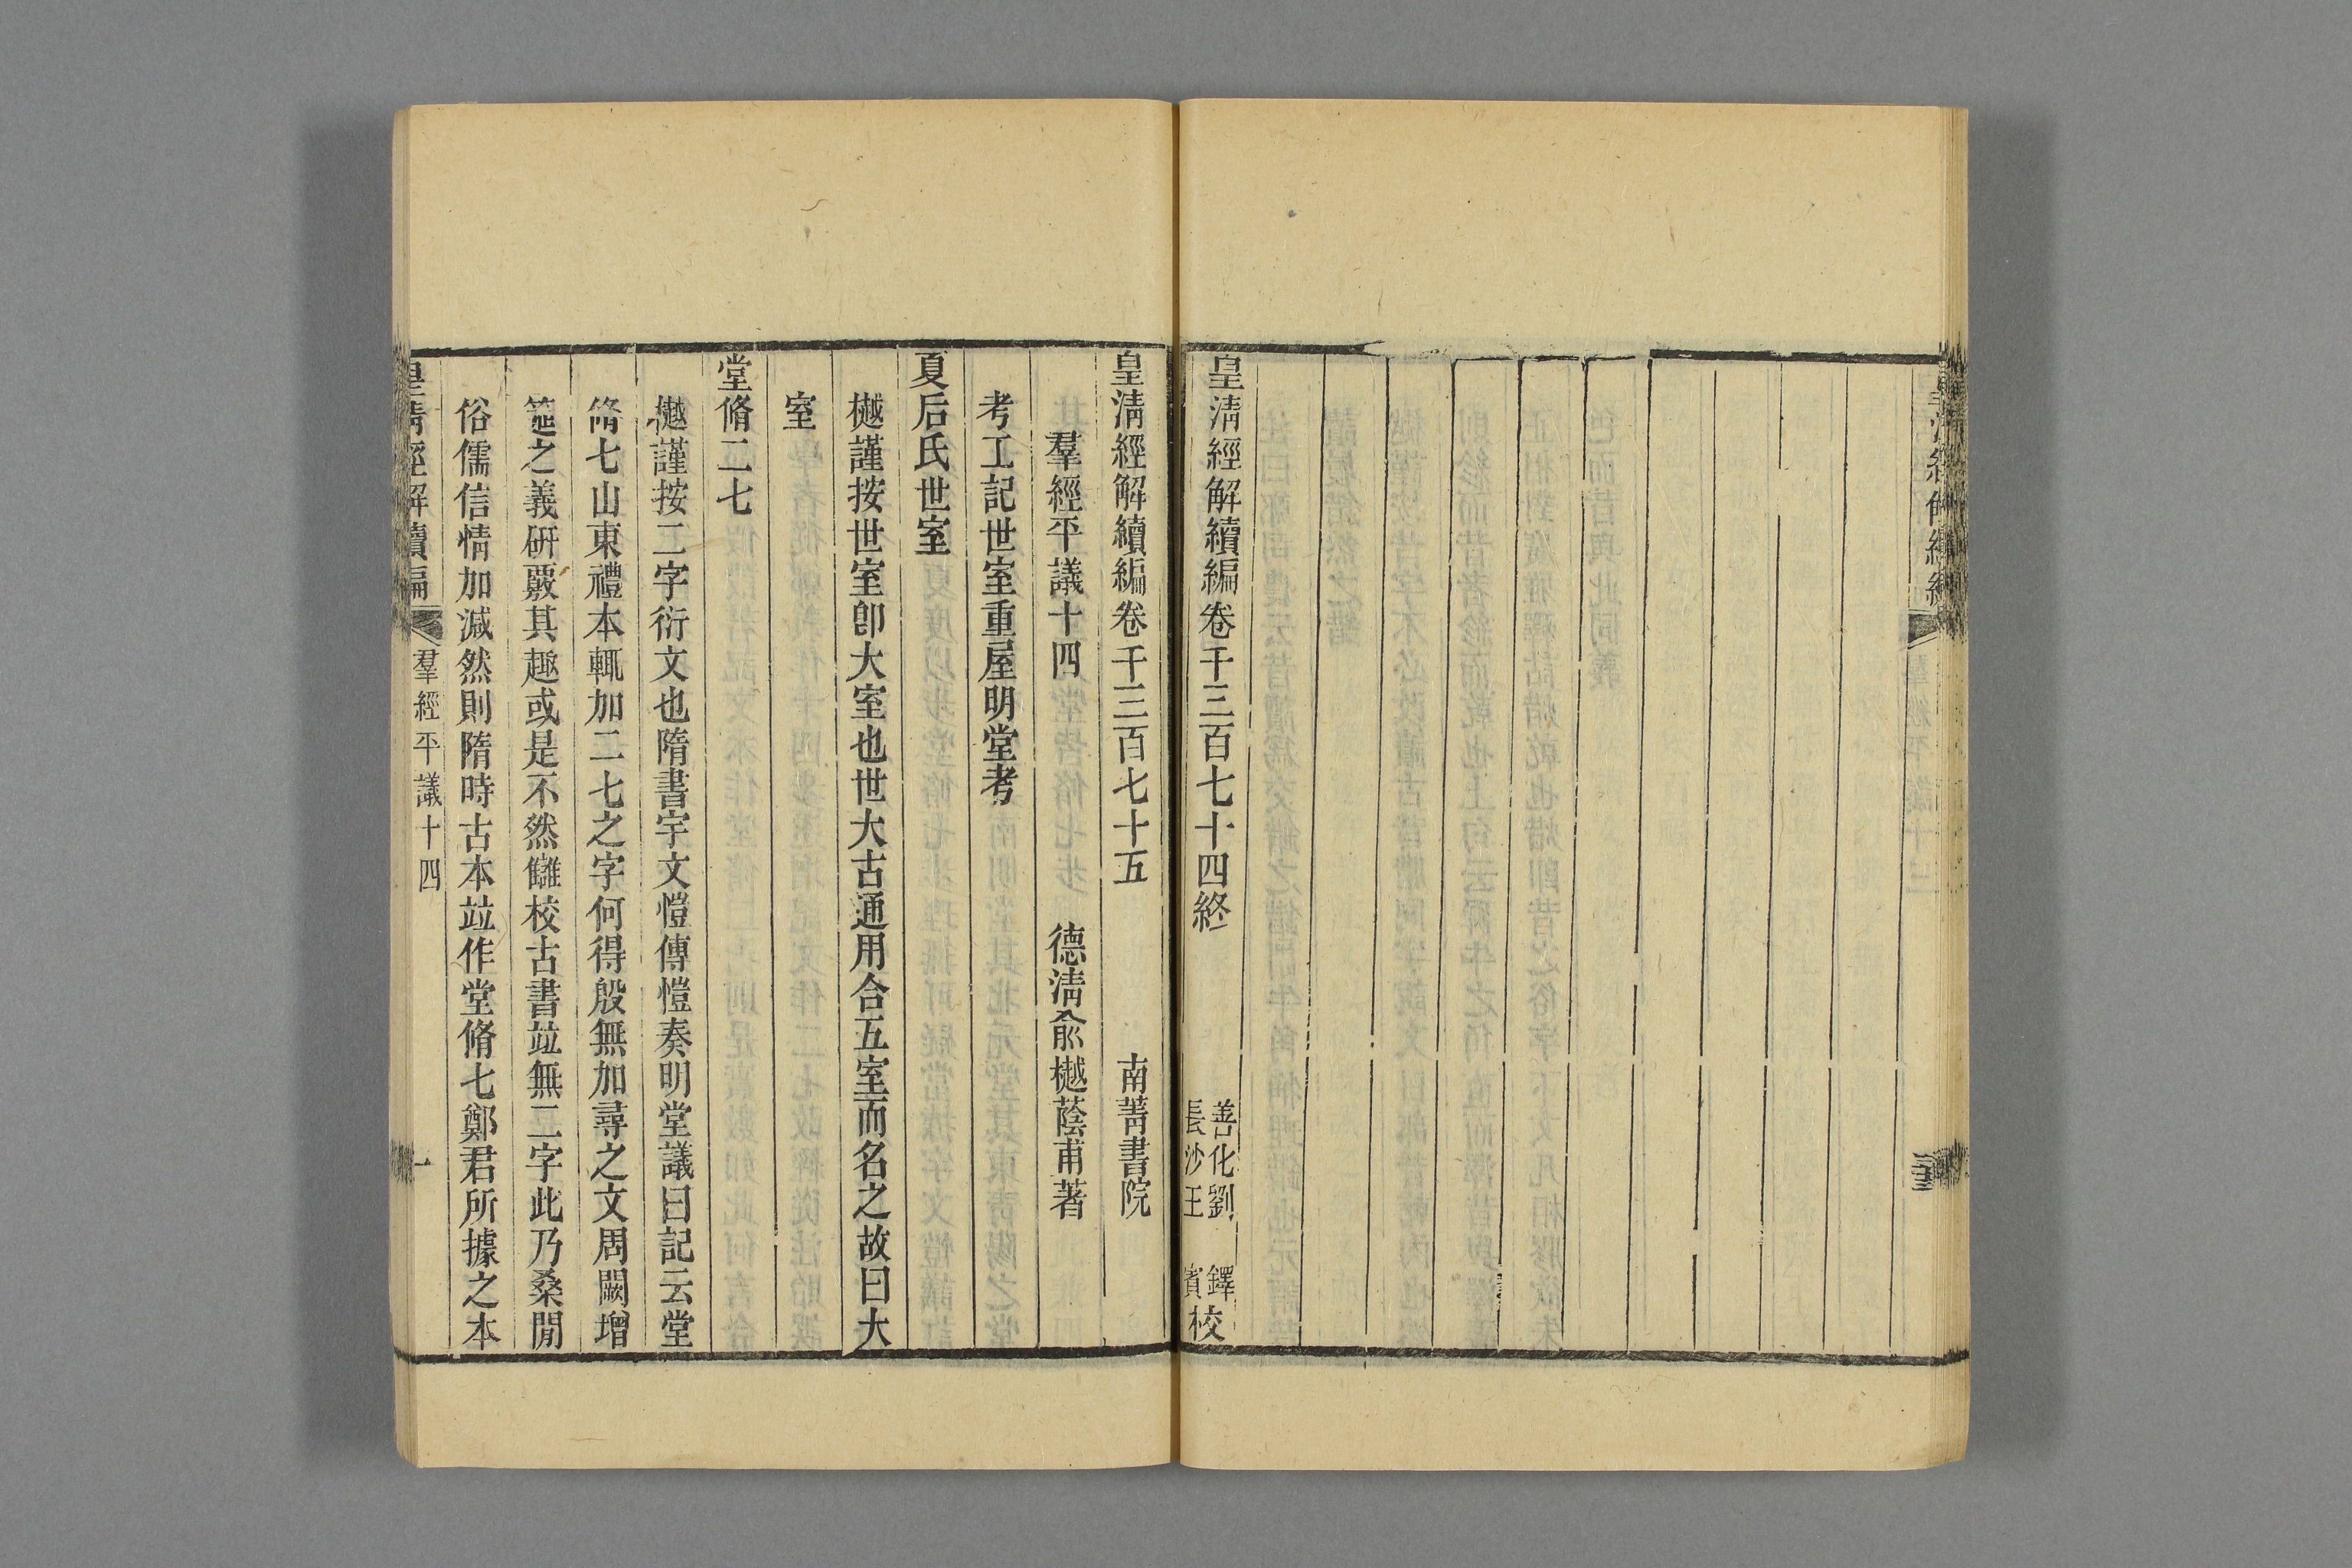 皇清經解續編卷千三百七十四終
善化劉 鐸
長沙王 賓
校
皇清經解續編卷千三百七十五 南菁書院
羣經平議十四 德清俞樾蔭甫著
考工記世室重屋明堂考
夏后氏世室
樾謹按世室卽大室也世大古通用合五室而名之故曰大
室
堂脩二七
樾謹按二字衍文也隋書宇文愷傳愷奏明堂議曰記云堂
脩七山東禮本輒加二七之字何得殷無加尋之文周闕增
筵之義研覈其趣或是不然讎校古書竝無二字此乃桑閒
俗儒信情加減然則隋時古本竝作堂脩七鄭君所據之本
皇清經解續編 羣經平議十四 一